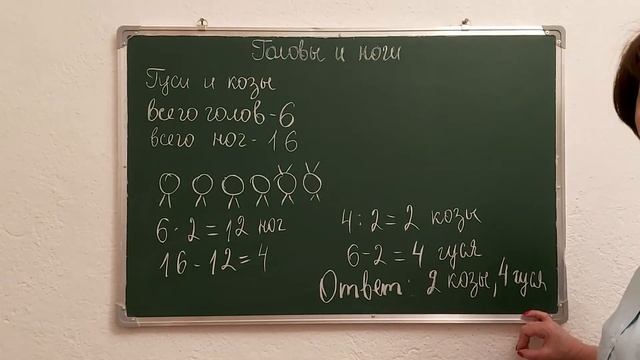 Головы и ноги
Гуси и козы
всего голов-6
всего ног-16
6·2=12 ног
16-12=4
4:2=2 козы
6-2=4 гуся
Ответ: 2 козы, 4 гуся